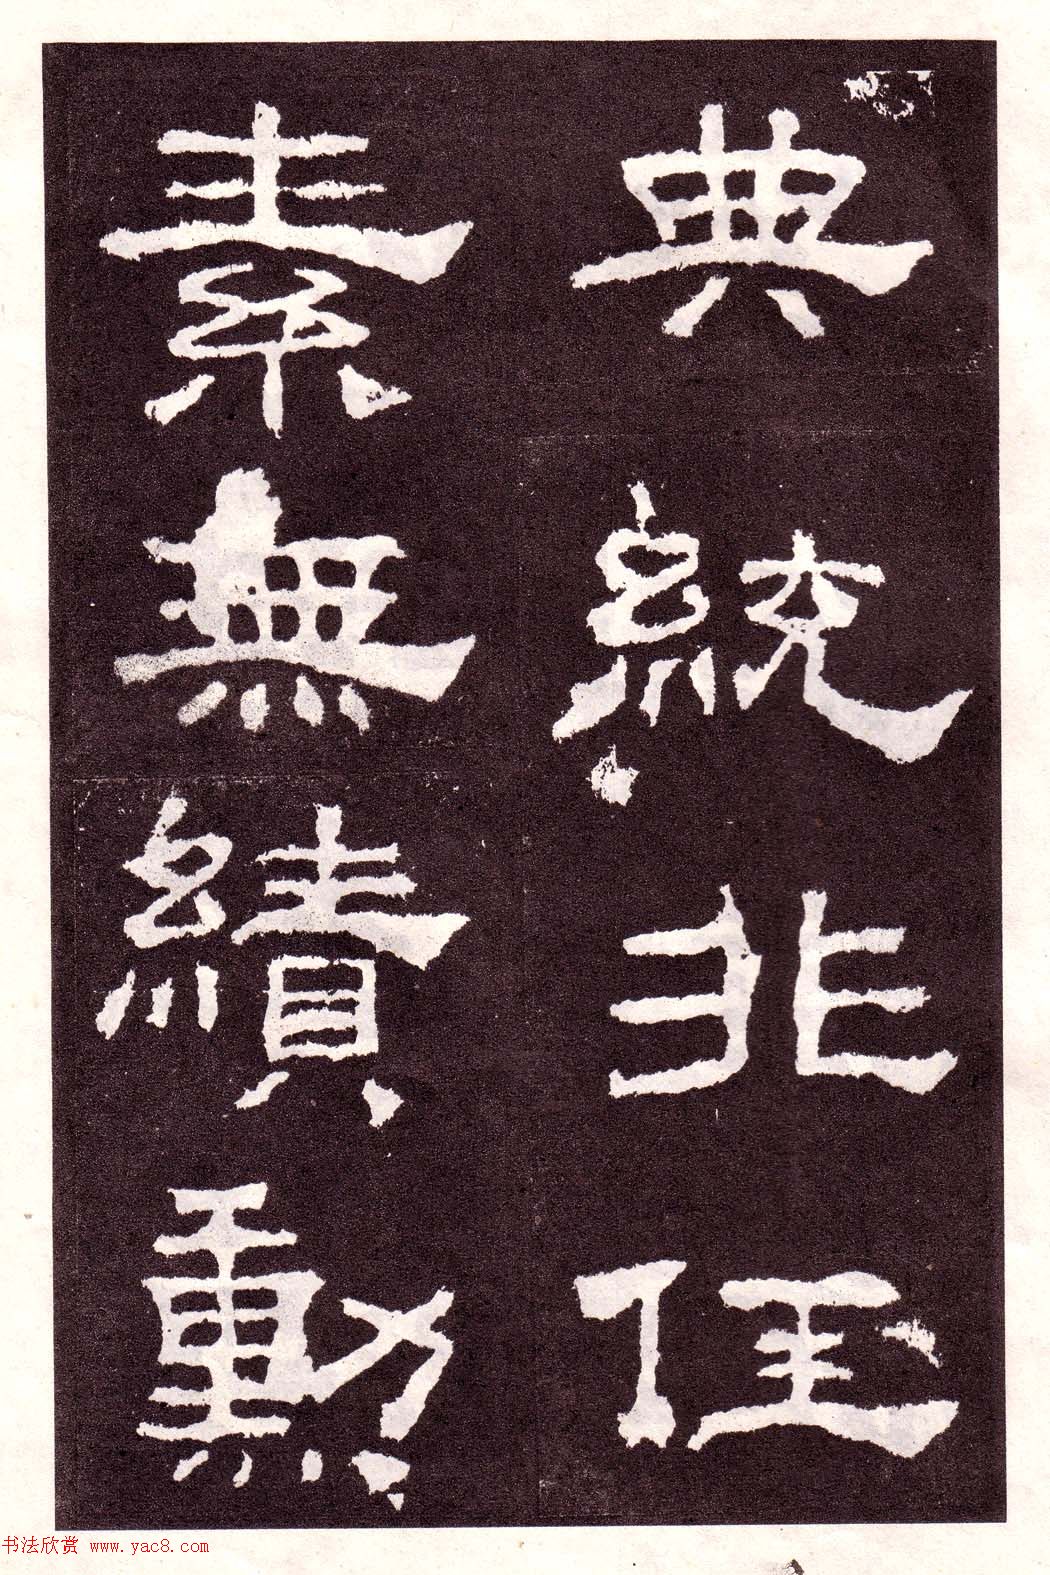 典統非俇
素無績勳
书法欣赏 www.yac8.com